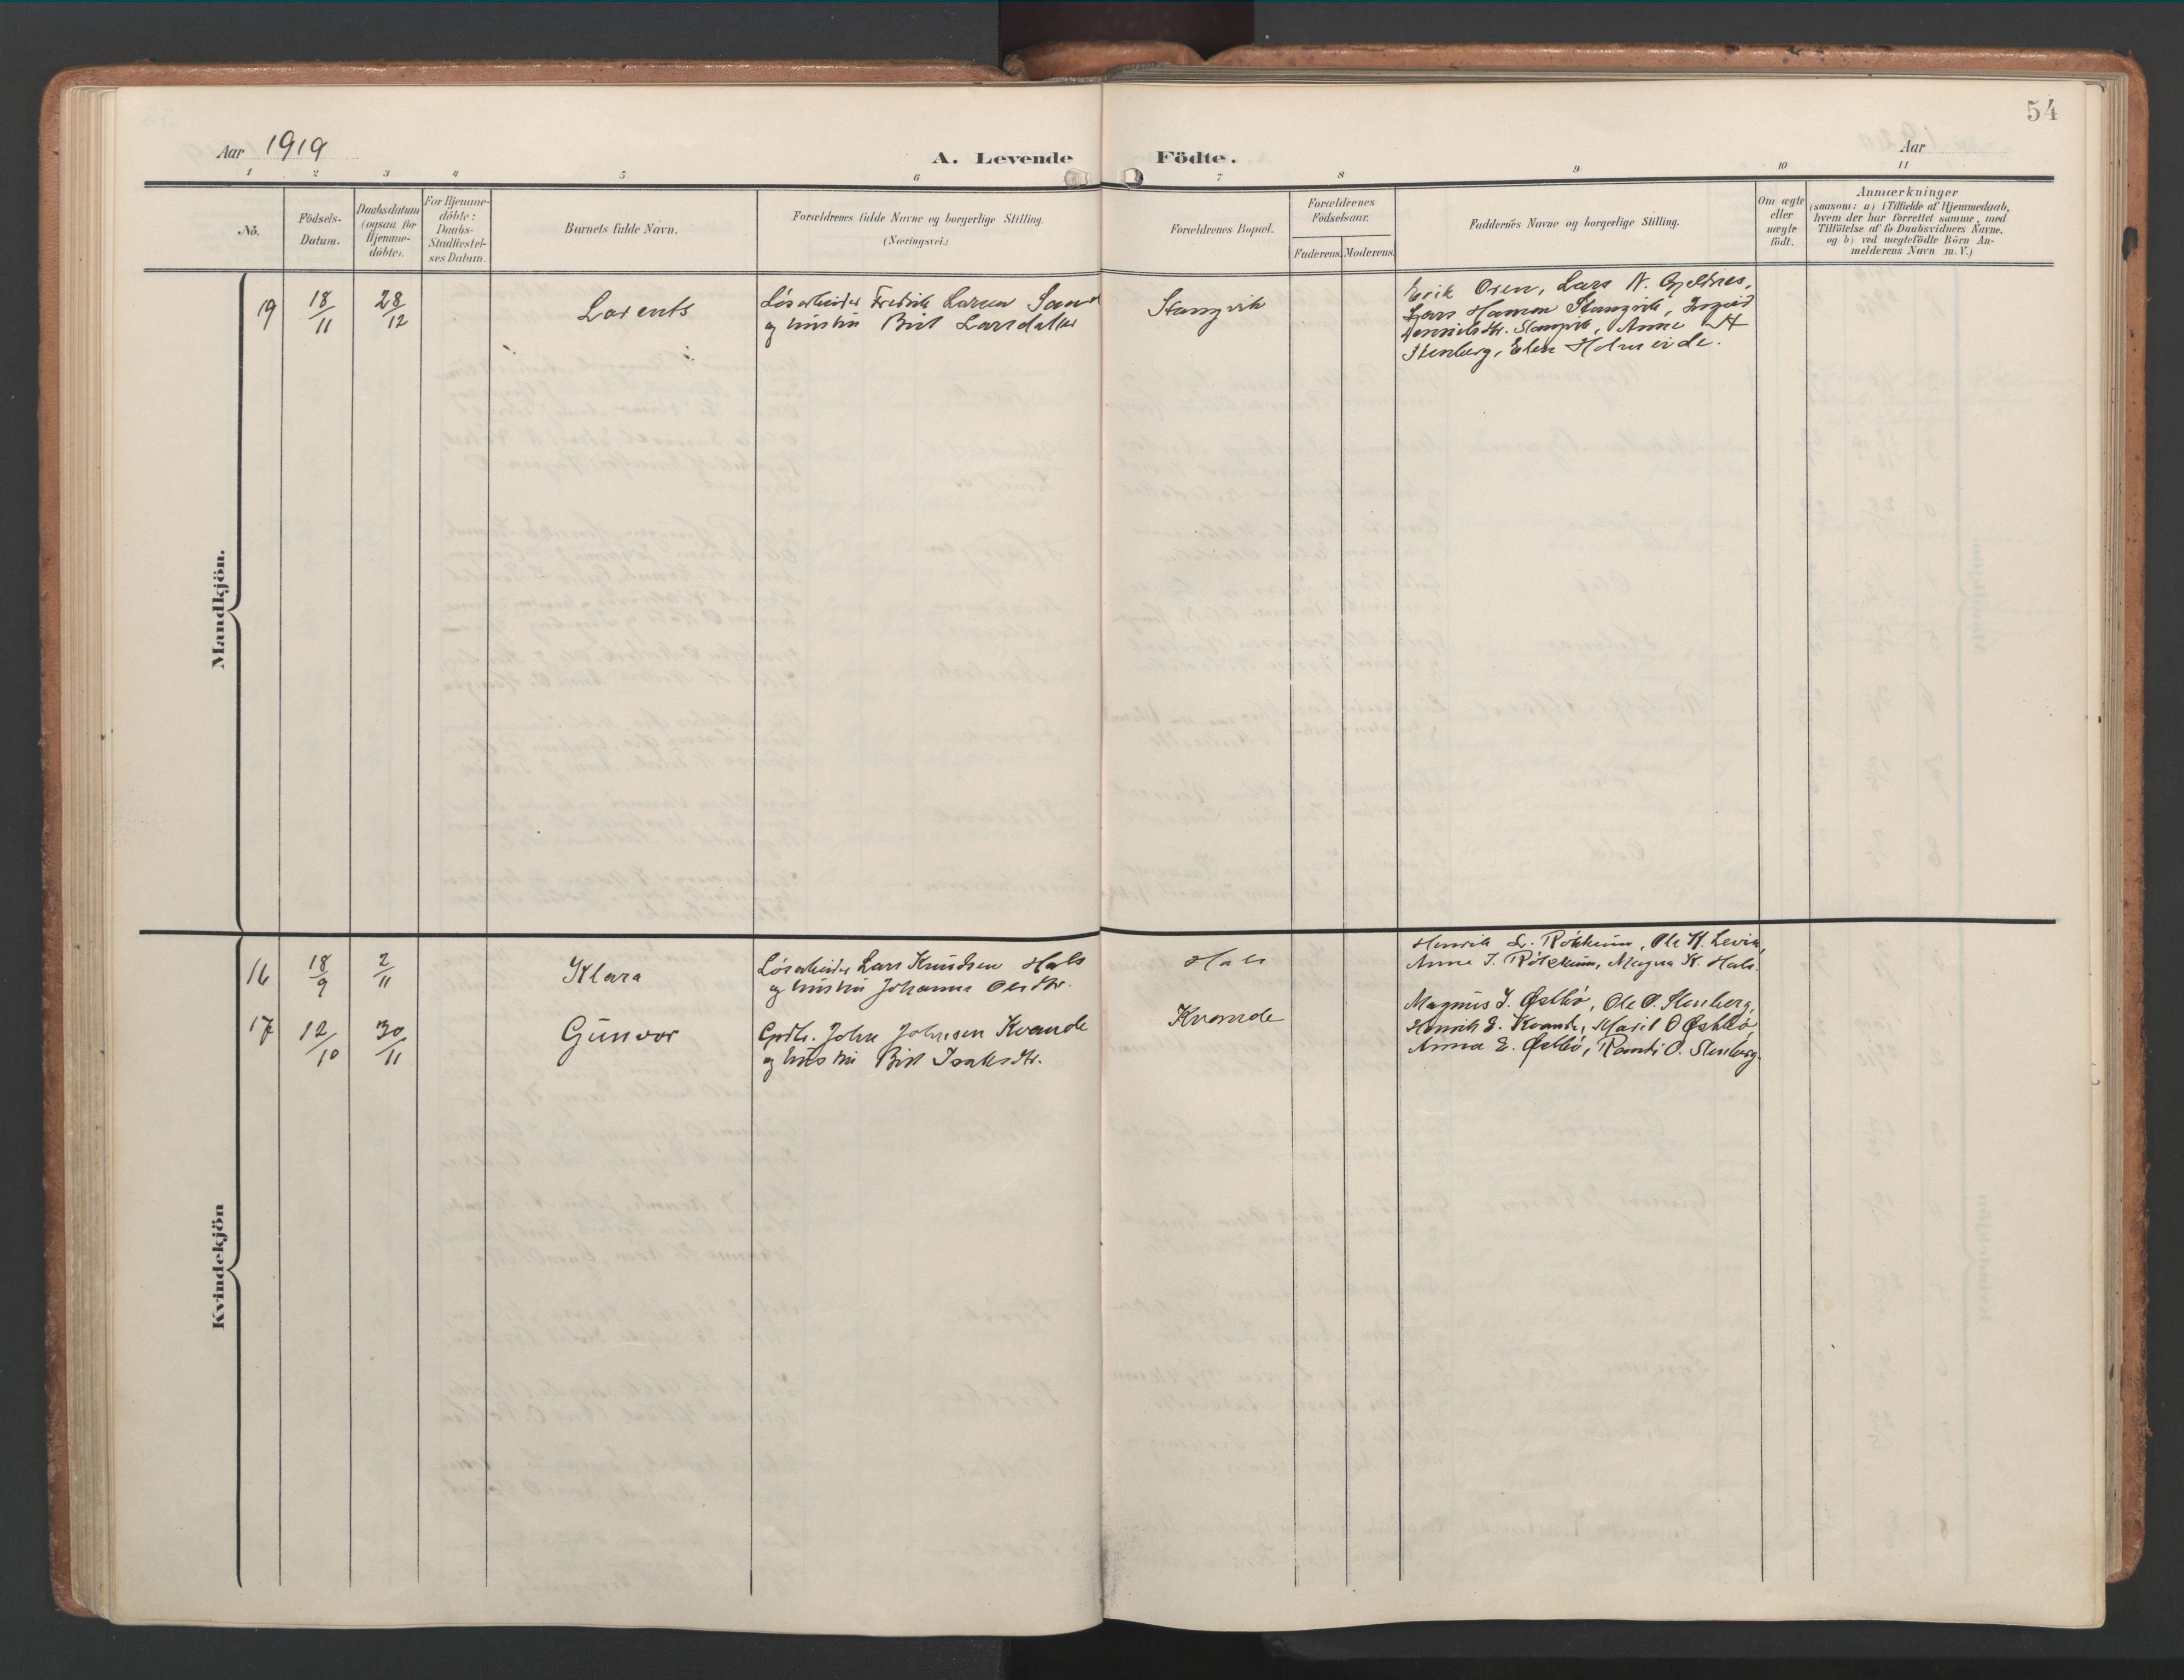 54
Aar 1919
A. Levende Födte.
Aar
1 2 3 4 5 6 7 8 9 10 11
No.
Födsels-Datum.
Daabsdatum (ogsaa for Hjemme-döbte).
For Hjemme-döbte: Daabs-Stadfæstel-ses Datum.
Barnets fulde Navn.
Forældrenes fulde Navne og borgerlige Stilling. (Næringsvei.)
Forældrenes Bopæl.
Forældrenes Födselsaar.
Faderens. Moderens.
Faddernes Navne og borgerlige Stilling.
Om ægte eller uægte födt.
Anmærkninger
(saasom: a) i Tilfælde af Hjemmedaab,
hvem der har forrettet samme, med
Tilföielse af to Daabsvidners Navne,
og b) ved uægtefödte Börn An-
melderens Navn m. V.)
Mandkjön.
19 18/11 28/12 Lorents
Løsarbeider Fredrik Larsen Sand
og hustru Birit Larsdatter
Stangvik
Erik Osen, Lars N. Gjeldnes,
Lars Hansen Stangvik, Ingrid
Henriksdtr. Stangvik, Anne
Stenberg, Elen Holmeide.
Kvindekjön
16 18/9 2/11 Klara
Løsarbeider Lars Knudsen Hals
og hustru Johanna Olesdtr.
Hals
Henrik L. Rökkum, Ole K. Levik,
Anne J. Rökkum, Magna K. Hals.
17 12/10 30/11 Gunvor
Gprbr. John Johnsen Kvande
og hustru Birit Isaksdtr.
Kvande
Magnus J. Østbö, Ole O. Stenberg,
Henrik E. Kvande, Marit O Østbö,
Anna E. Østbö, Randi O. Stenberg.